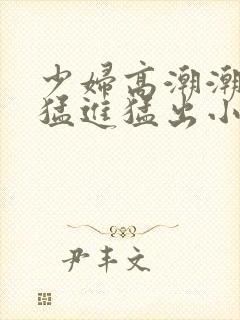 少婦高潮潮
猛進猛出小
尹丰文